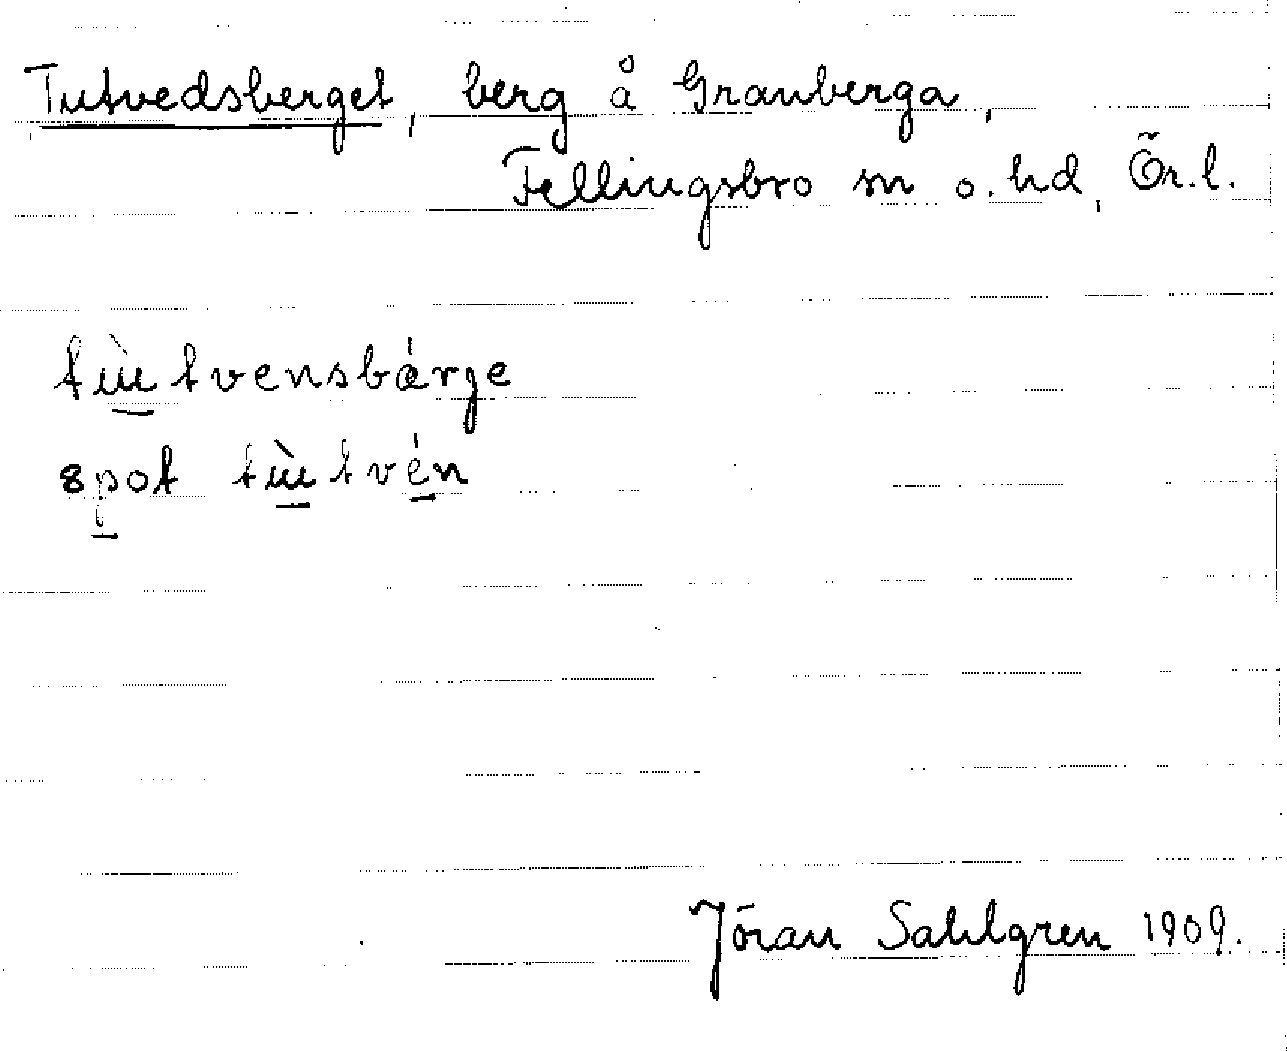 Tutvedsberget, berg å Granberga,
Fellingsbro sn o. hd, Ör. l.
tùtvensbárge
spot tùtvén
Jöran Sahlgren 1909.